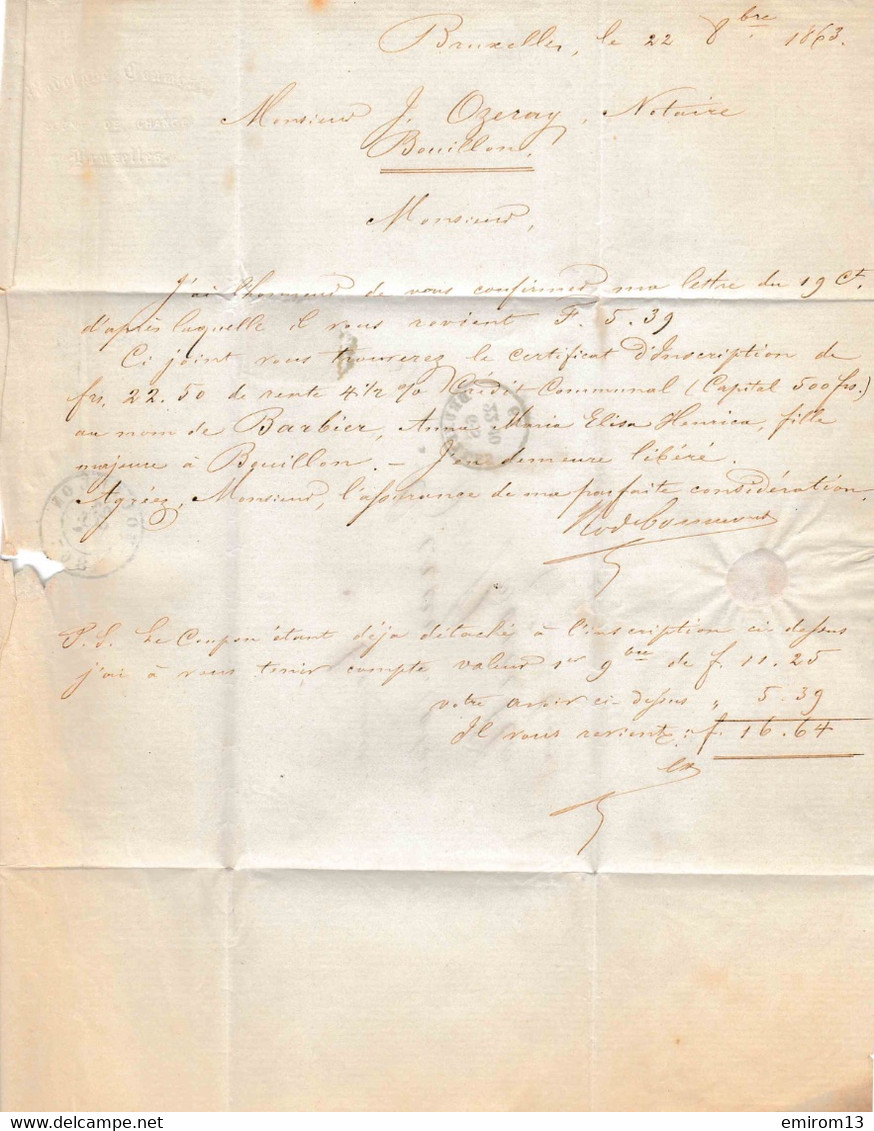 Bruxelles, le 22 8bre 1863.
DE CHANGE
Bruxelles
Monsieur J. Ozeray, Notaire
Bouillon,
Monsieur,
J'ai l'honneur de vous confirmer ma lettre du 19 Ct.
d'après laquelle il vous revient F. 5.39
Ci joint vous trouverez le certificat d'Inscription de
frs. 22.50 de rente 4 1/2 % Crédit Communal (Capital 500 frs.)
au nom de Barbier, Anna Maria Elisa Henrica, fille
majeure à Bouillon. — J'en demeure libéré.
Agréez, Monsieur, l'assurance de ma parfaite considération.
P.S. Le Coupon étant déja détaché à l'inscription ci dessus
j'ai à vous tenir compte, valeur 1er 9bre de f. 11.25
votre avoir ci-dessus " 5.39
Il vous revient : f. 16.64
delcampe.net
emirom13